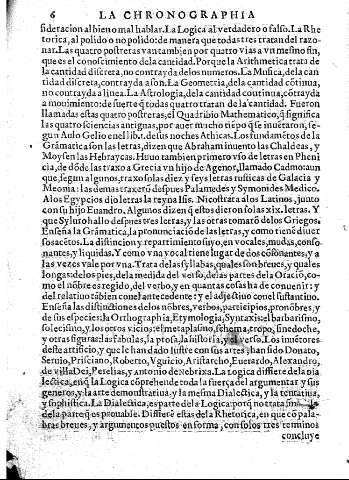 6 LA CHRONOGRAPHIA
sideracion al bien o mal hablar. La Logica al verdadero o falso. La Rhe
torica, al polido o no polido: de manera que todas tres tratan del razo-
nar. Las quatro postreras van tambien por quatro vias a vn mesmo fin,
que es el conoscimiento dela cantidad. Porque la Arithmetica trata de
la cantidad discreta, no contrayda de los numeros. La Musica, dela can
tidad discreta, contrayda a son. La Geometria, dela cantidad cõtinua,
no contrayda a linea. La Astrologia, dela cantidad continua, cõtrayda
a mouimiento: de suerte q̃ todas quatro tratan de la cantidad. Fueron
llamadas estas quatro postreras, el Quadriuio Mathematico, q̃ significa
las quatro sciencias antiguas, por auer mucho tiẽpo q̃ se inuẽtaron, se-
gun Aulo Gelio en el libr. de sus noches Athicas. Los fundamẽtos de la
Grãmatica son las letras, dizen que Abraham inuento las Chaldeas, y
Moysen las Hebraycas. Huuo tambien primero vso de letras en Pheni
cia, de dõde las traxo a Grecia vn hijo de Agenor, llamado Cadmo: aun
que, segun algunos, traxo solas diez y seys letras rusticas de Galacia y
Meonia: las demas traxerõ despues Palamedes y Symonides Medico.
A los Egypcios dio letras la reyna Isis. Nicostrata a los Latinos, junto
con su hijo Euandro. Algunos dizen q̃ estos dieron solas xix. letras. Y
que Sylu rohallo despues otras tres, y las otras tomarõ delos Griegos.
Enseña la Grãmatica, la pronunciaciõ de las letras, y como tienẽ diuer
sos acẽtos. La distincion y repartimiento suyo, en vocales, mudas, conso
nantes, y liquidas. Y como vna vocal tiene lugar de dos cõsonantes, y a
las vezes vale por vna. Trata de las syllabas, quales son breues, y quales
longas: delos pies, dela medida del verso, de las partes dela Oraciõ, co-
mo el nõbre es regido, del verbo, y en quantas cosas ha de conuenir: y
del relatiuo tãbien con el antecedente: y el adjectiuo con el sustantiuo.
Enseña las distinctiones delos nõbres, verbos, participios, pronõbres, y
de sus especies: la Orthographia, Etymologia, Syntaxis: el barbarismo,
solecismo, y los otros vicios: el metaplasmo, schema, tropo, sinedoche,
y otras figuras: las fabulas, la prosa, la historia, y el verso. Los inuẽtores
deste artificio, y que le han dado lustre con sus artes, han sido Donato,
Seruio, Prisciano, Roberto, Vguicio, Aristarcho, Euerardo, Alexandro,
de villa Dei, Peselias, y Antonio de Nebrixa. La Logica differe de la dia
lectica, en q̃ la Logica cõprehende toda la fuerça del argumentar y sus
generos, y la arte demonstratiua, y la mesma Dialectica, y la tentatiua,
y sophistica. La Dialectica, es parte de la Logica: porq̃ no trata sino
dela parte q̃ es prouable. Differẽ estas de la Rhetorica, en que cõ pala-
bras breues, y argumentos puestos en forma, con solos tres terminos
concluye